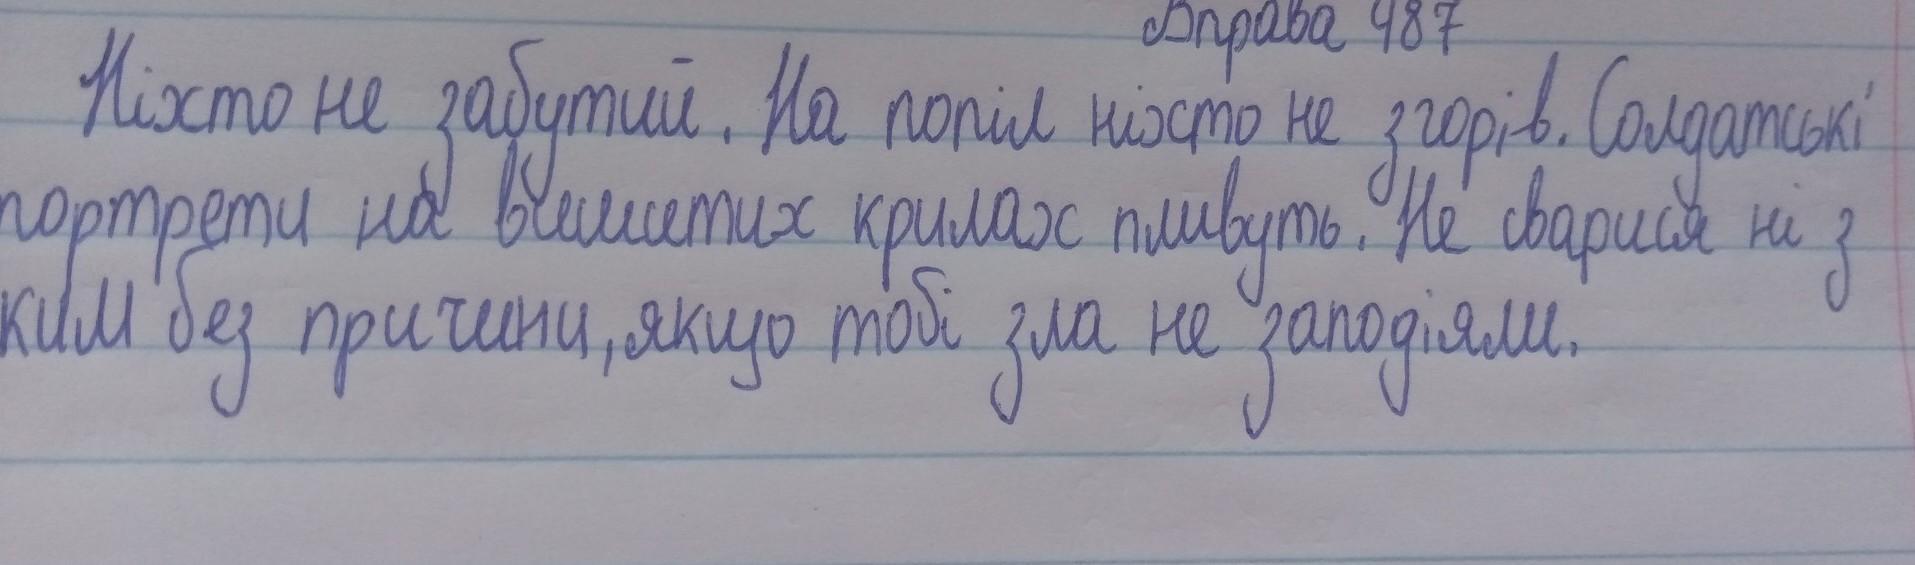 Вправа 487
Ніхто не забутий. На попіл ніхто не згорів. Солдатські
портрети на вишитих крилах пливуть. Не сварися ні з
ким без причини, якщо тобі зла не заподіяли.